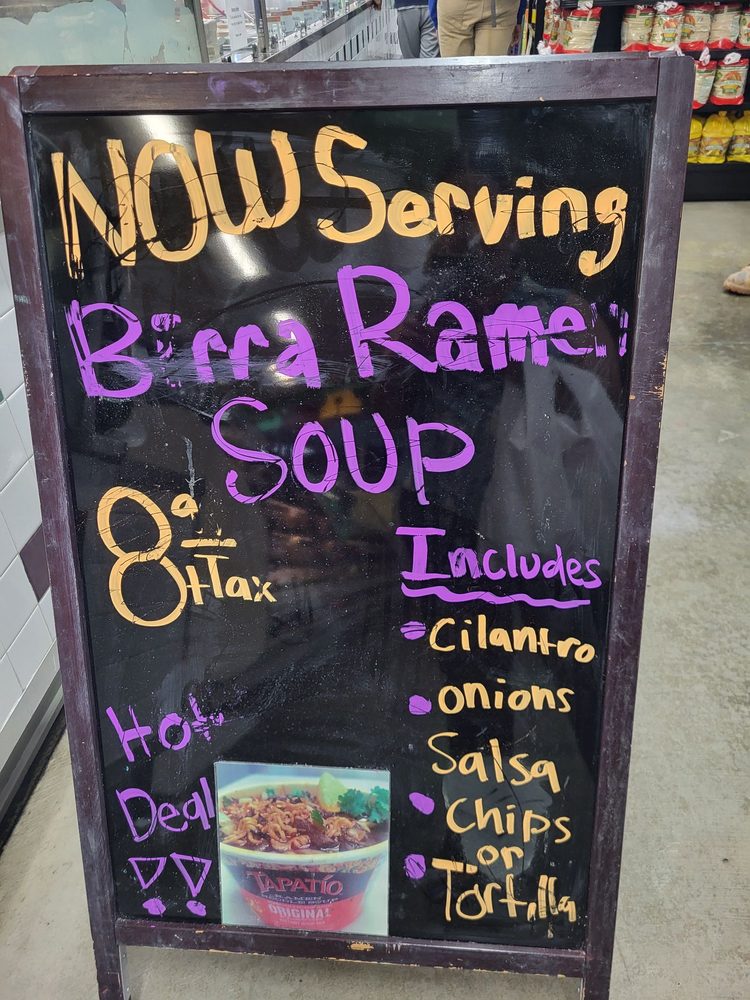 NOW Serving
Birra Ramen
SOUP
8
+Tax
Includes
Cilantro
onions
Salsa
Chips
or
Tortilla
Hot
Deal
!!
TAPATÍO
RAMEN NOODLE SOUP
ORIGINAL